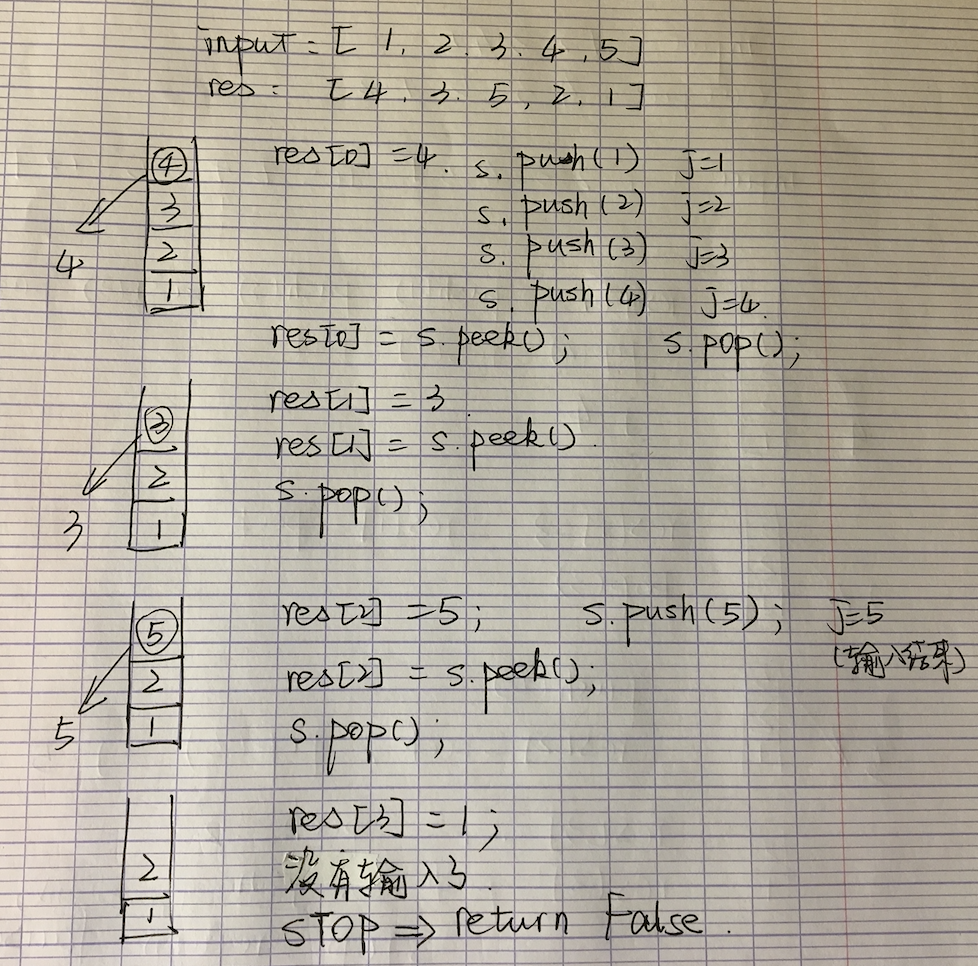 input = [ 1. 2. 3. 4. 5]
res = [4. 3. 5, 2, 1]
res[0] = 4. s. push(1) j=1
s. push(2) j=2
s. push(3) j=3
s. push(4) j=4.
4
3
2
1
4
res[0] = s.peek(); s.pop();
res[1] = 3
res[1] = s.peek().
s.pop();
3
2
1
3
res[2] = 5; s.push(5); j=5
(输入结束)
res[2] = s.peek();
s.pop();
5
2
1
5
res[3] = 1;
没有输入了.
STOP ⇒ return False.
2
1